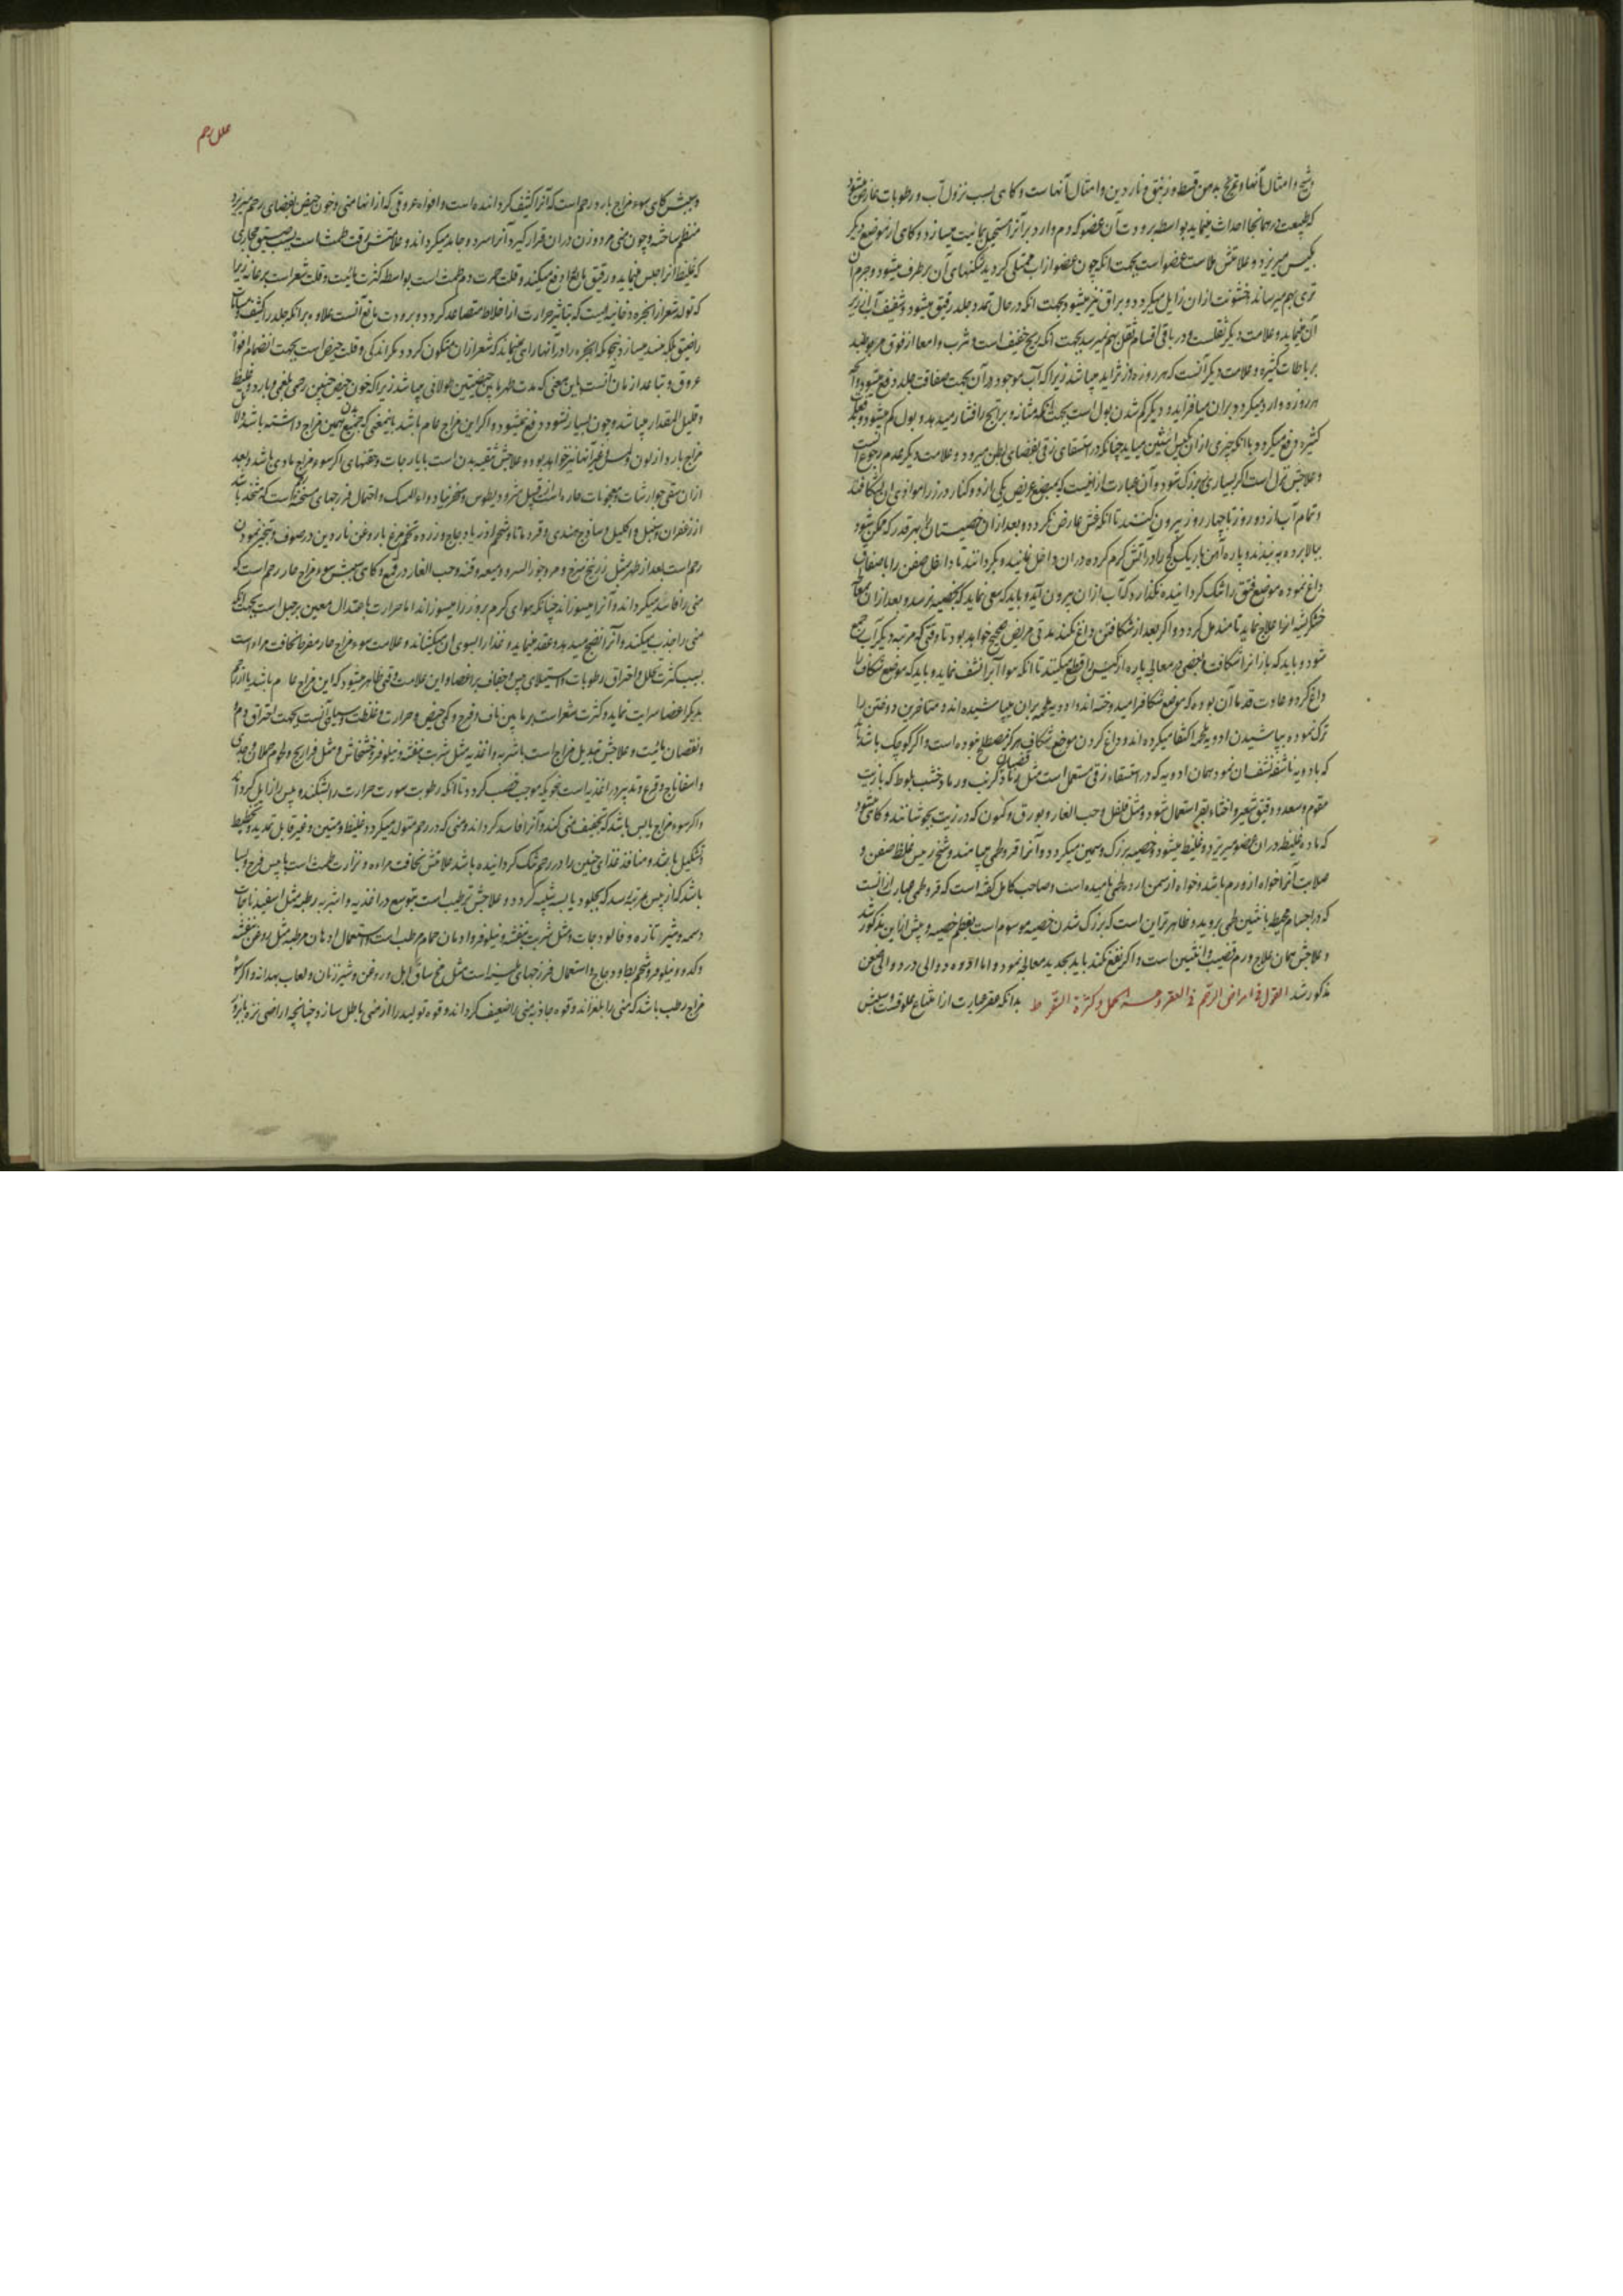 و شیح و امثال آنها و تمریخ بدهن قسط و زنبق و ناردین و امثال آنهاست و کاهی بسبب نزول آب و رطوبات عارض میشود
که طبیعت در همانجا احداث مینماید بواسطه برودت آن عضو که دم وارد بر آنرا مستحیل بمائیت میسازد و کاهی از موضع دیکر
بکیس میریزد و علامتش ملاست عضو است بجهت انکه چون عضو از آب ممتلی کردید شکنهای آن برطرف میشود و جرم آن
تری بهم میرساند و خشونت ازان زایل میکردد و براق نیز میشود بجهت انکه در حال تمدد جلد رقیق میشود و شفیف آب از زیر
آن مینماید و علامت دیکر ثقلست و در باقی اقسام ثقل بهم نمیرسد بجهت انکه ریح خفیف است و ثرب و امعا از فوق مربوطند
برباطات کثیره و علامت دیکر آنست که هر روزه در تزاید میباشد زیرا که آب موجود در آن بجهت صفاقت جلد دفع نمیشود و آنچه
هر روزه وارد میکردد بران میافزاید و دیکر کم شدن بول است بجهت انکه مثانه و برابخ را فشار میدهد و بول کم میشود
کثیر دفع میکردد یا انکه چیزی ازان بکیس انثیین میاید چنانکه در استسقای زقی بفضای بطن میرود و علامت دیکر عدم رجوع آنست
و علاجش بزل است اکر بسیاری بزرک شود و آن عبارت ازانیست که بمبضع عریض یکی از دو کنار درز را موازی آن بشکافند
و تمام آب از دو روز تا چهار روز بیرون کنند تا انکه غش عارض نکردد و بعد ازان خصیستان را بهر قدر که ممکن شود
ببالا برده به بندند و پاره آهن باریک کج را در آتش کرم کرده دران داخل نمایند و بکردانند تا داخل صفن را با صفاق
داغ نموده موضع فتق را تنک کردانیده نکذارد که آب ازان بیرون آید و باید که سعی نماید که بخصیه نرسد و بعد ازان معا
خشکریشه انرا علاج نماید تا مندمل کردد و اکر بعد از شکافتن داغ نکنند مدتی مریض صحیح خواهد بود تا وقتی که مرتبه دیکر آب جمع
شود و باید که باز انرا شکافت و بعضی در معالجه پاره از کیس را قطع میکنند تا انکه هوا آبرا نشف نماید و باید که موضع شکاف را
داغ کرد و عادت قدما آن بوده که موضع شکاف را میدوخته اند و ادویه ملحمه بران میپاشیده اند و متاخرین دوختن را
ترک نموده بپاشیدن ادویه ملحمه اکتفا میکرده اند و داغ کردن موضع شکاف هرکز مصطلح نبوده است و اکر کوچک باشد باید
که بادویه ناشفه نشف ان نمود بهمان ادویه که در استسقاء زقی مستعمل است مثل رماد قضبان کرنب و رماد خشب بلوط که بازیت
مقوم و سعد و دقیق شعیر و اخثاء بقر استعمال شود و مثل فلفل و حب الغار و بورق و کمون که در زیت بجوشانند و کاهی میشود
که ماده غلیظ دران عضو میریزد و غلیظ میشود و خصیه بزرک و سمین میکردد و آنرا قرو لحمی مینامند و شیخ رییس غلظ صفن و
صلابت آنرا خواه از ورم باشد و خواه از سمن اروه لحمی نامیده است و صاحب کامل کفته است که قرو لحمی عبارت ازانست
که در اجسام محیط بانثیین لحمی بروید و ظاهرتر این است که بزرک شدن خصیه موسوم است بعظم خصیه و پیش ازاین مذکور شد
و علاجش همان علاج ورم قضیب و انثیین است و اکر نفع نکند باید بحدید معالجه نمود و اما ادره دوالی در دوالی صفن
مذکور شد القول فی امراض الرحم فی العقر و عسر الحبل و کثرة السقوط بدانکه عقر عبارت از امتناع علوقست و سببش
علل رحم
و سببش کاهی سوء مزاج بارد رحم است که آنرا کثیف کردانیده است و افواه عروقی که ازانها منی و خون حیض بفضای رحم میریزد
منضم ساخته و چون منی مرد و زن دران قرار کیرد آنرا سرد و جامد میکرداند و علامتش رقت طمث است بسبب تضییق مجاری
که غلیظ انرا حبس مینماید و رقیق بالغ را دفع میکند و قلت حمرت دم طمث است بواسطه کثرت مائیت و قلت شعر است بر عانه زیرا
که تولد شعر از ابخره دخانیه ایست که بتاثیر حرارت از اخلاط متصاعد کردد و برودت مانع آنست علاوه برانکه جلد را کثیف و مسامات
را ضیق بلکه منسد میسازد بنحوی که ابخره را در آنها راهی نمیماند که شعر ازان متکون کردد و دیکر اندکی و قلت حیض است بجهت انضمام افواه
عروق و تباعد ازمان آنست باین معنی که مدت طهر مابین حیضتین طولانی میباشد زیرا که خون حیض چنین رحمی بلغمی و بارد و غلیظ
و قلیل المقدار میباشد و چون بسیار نشود دفع نمیشود و اکر این مزاج عام باشد باینمعنی که جمیع بدن همین مزاج داشته باشد دلایل
مزاج بارد از لون و لمس و غیر آنها نیز خواهد بود و علاجش تنقیه بدن است بایارجات و حقنهای اکر سوء مزاج مادی باشد و بعد
ازان سقی جوارشات و معجونات حاره است از قبیل مثرودیطوس و سنجرنیا و دواء المسک و احتمال فرزجهای مسخنه است که متخذ باشد
از زعفران و سنبل و اکلیل و ساذج هندی و قردمانا و شحم اوز یا دجاج و زرده تخم مرغ با روغن ناردین در صوف و تبخیر نمودن
رحم است بعد از طهر بمثل زرنیخ سرخ و مر و جوز السرو و میعه و قنه و حب الغار در قمع و کاهی سببش سوء مزاج حار رحم است که
منی را فاسد میکرداند و آنرا میسوزاند چنانکه هوای کرم بزور را میسوزاند اما حرارت باعتدال معین بر حبل است بجهت انکه
منی را جذب میکند و آنرا نضج میدهد و عقد مینماید و غذا را بسوی آن میکشاند و علامت سوء مزاج حار مفرط نحافت مراه است
بسبب کثرت تحلل و احتراق رطوبات و استیلای یبس و جفاف بر اعضا و این علامت وقتی ظاهر میشود که این مزاج عام باشد یا از رحم
بدیکر اعضا سرایت نماید و کثرت شعر است بر مابین ناف و فرج و کمی حیض و حرارت و غلظت و سیاهی آنست بجهت احتراق دم
و نقصان مائیت و علاجش تبدیل مزاج است باشربه و اغذیه مثل شربت بنفشه و نیلوفر و خشخاش و مثل فراریج و لحوم حملان و جدی
و اسفاناج و قرع و تدبیر در اغذیه است بنحویکه موجب خصب کردد تا انکه رطوبت سورت حرارت را بشکند و یبس را زایل کرداند
و اکر سوء مزاج یابس باشد که تجفیف منی کند و آنرا فاسد کرداند و منی که در رحم متولد میکردد غلیظ و متین و غیر قابل تمدید و تخطیط
و تشکیل باشد و منافذ غذای جنین را در رحم تنک کردانیده باشد علامتش نحافت مراه و نزارت طمث است با یبس فرج و بسا
باشد که از یبس بمرتبه رسد که بجلود یابسه شبیه کردد و علاجش ترطیب است بتوسع در اغذیه و اشربه رطبه مثل اسفیدباجات
دسمه و شیر تازه و فالودجات و مثل شربت بنفشه و نیلوفر و ادمان حمام مرطب است و استعمال ادهان مرطبه مثل روغن بنفشه
و کدو و نیلوفر و شحم بط و دجاج و استعمال فرزجهای ملینه است مثل مخ ساق ایل و روغن و شیر زنان و لعاب بهدانه و اکر سوء
مزاج رطب باشد که منی را بلغزاند و قوه جاذبه منی را ضعیف کرداند و قوه تولید را از منی باطل سازد چنانچه اراضی نزه بزور